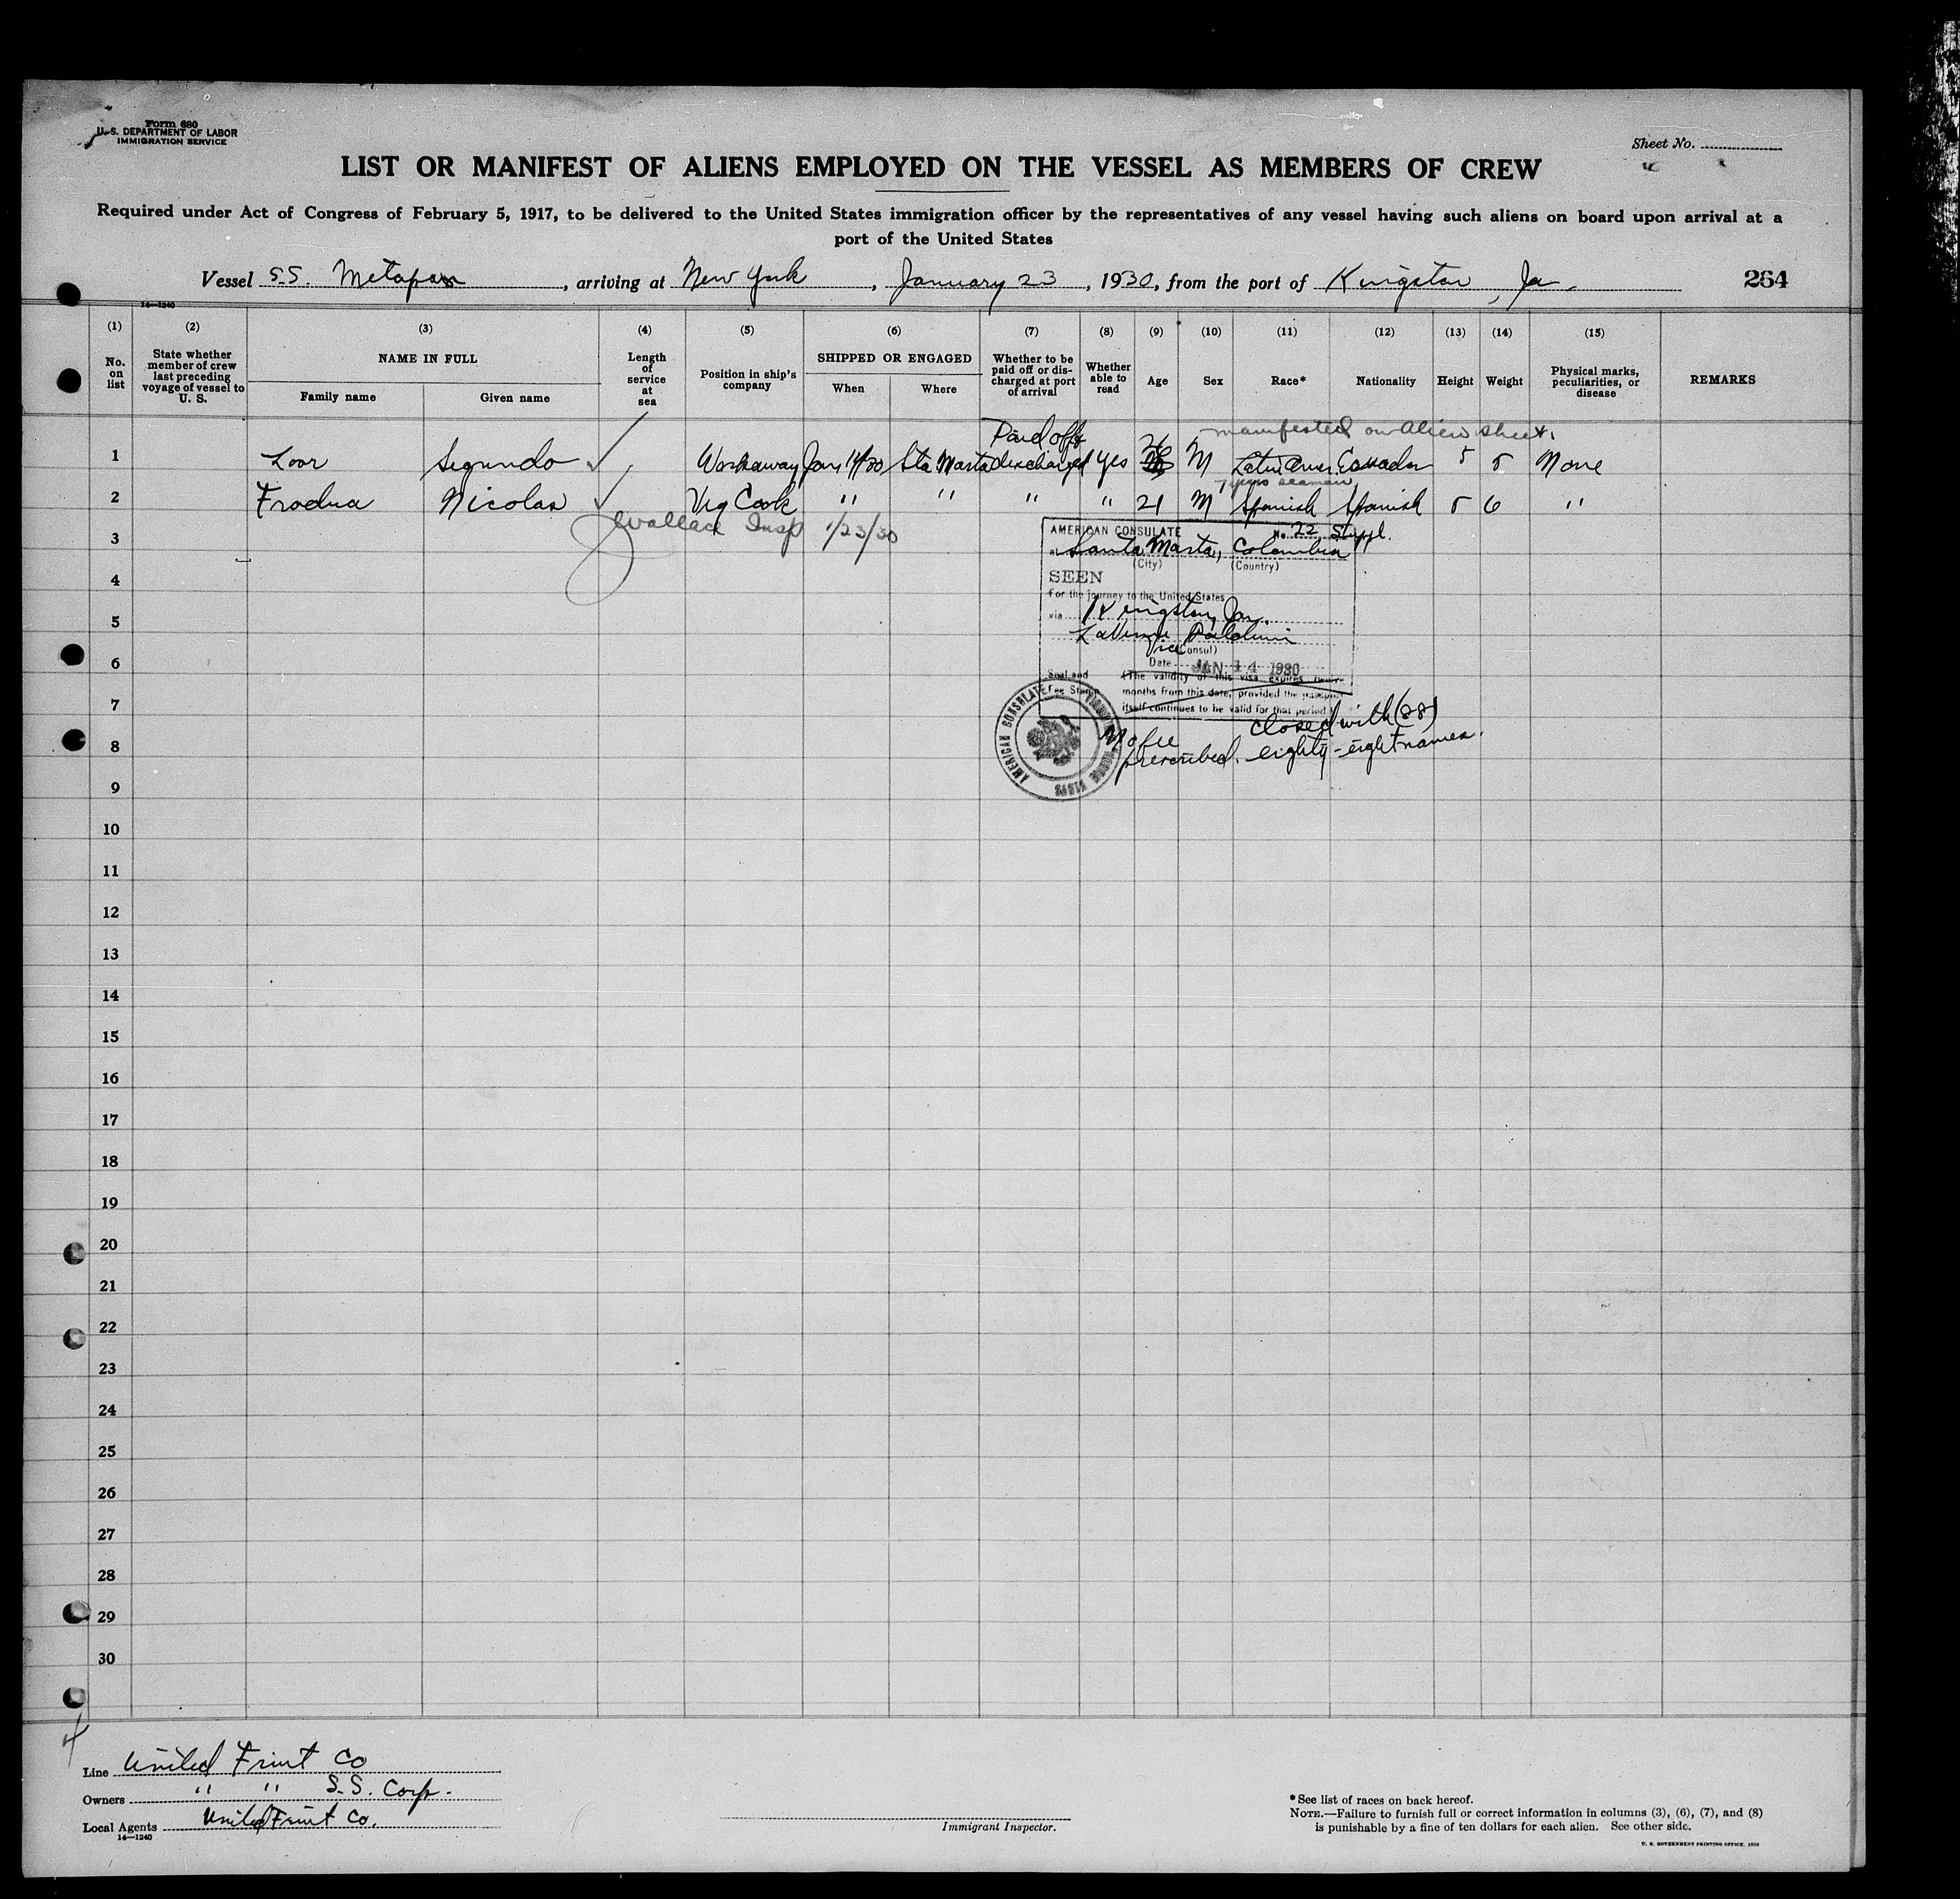 Form 680
U. S. DEPARTMENT OF LABOR
IMMIGRATION SERVICE
Sheet No.
LIST OR MANIFEST OF ALIENS EMPLOYED ON THE VESSEL AS MEMBERS OF CREW
Required under Act of Congress of February 5, 1917, to be delivered to the United States immigration officer by the representatives of any vessel having such aliens on board upon arrival at a
port of the United States
Vessel S.S. Metapan, arriving at New York, January 23, 1930, from the port of Kingston, Ja. 264
14—1240
(1) (2) (3) (4) (5) (6) (7) (8) (9) (10) (11) (12) (13) (14) (15)
No. on list
State whether member of crew last preceding voyage of vessel to U. S.
NAME IN FULL
Family name
Given name
Length of service at sea
Position in ship's company
SHIPPED OR ENGAGED
When
Where
Whether to be paid off or discharged at port of arrival
Whether able to read
Age
Sex
Race*
Nationality
Height
Weight
Physical marks, peculiarities, or disease
REMARKS
manifested on Alien sheet.
Paid off &
1 Loor Segundo Workaway Jan 14/30 Sta Marta discharged yes 26 M Latin Amer. Ecuador 5 5 None
seaman
2 Frodua Nicolas Veg Cook " " " " 21 M Spanish Spanish 5 6 "
Wallace Insp 1/23/30
3
4
5
6
7
8
9
10
11
12
13
14
15
16
17
18
19
20
21
22
23
24
25
26
27
28
29
30
AMERICAN CONSULATE No. 22 Suppl.
at Santa Marta, Colombia
(City) (Country)
SEEN
For the journey to the United States
via Kingston, Ja.
LaVerne Baldwin
Vice Consul)
Date JAN 14 1930
(The validity of this visa expires twelve
months from this date, provided the passport
itself continues to be valid for that period.)
Seal and
Fee Stamp
AMERICAN CONSULATE
No fee
prescribed.
closed with (88)
eighty-eight names.
Line United Fruit Co
Owners " " S.S. Corp.
Local Agents United Fruit Co.
14—1240
Immigrant Inspector.
*See list of races on back hereof.
NOTE.—Failure to furnish full or correct information in columns (3), (6), (7), and (8)
is punishable by a fine of ten dollars for each alien. See other side.
U. S. GOVERNMENT PRINTING OFFICE, 1929